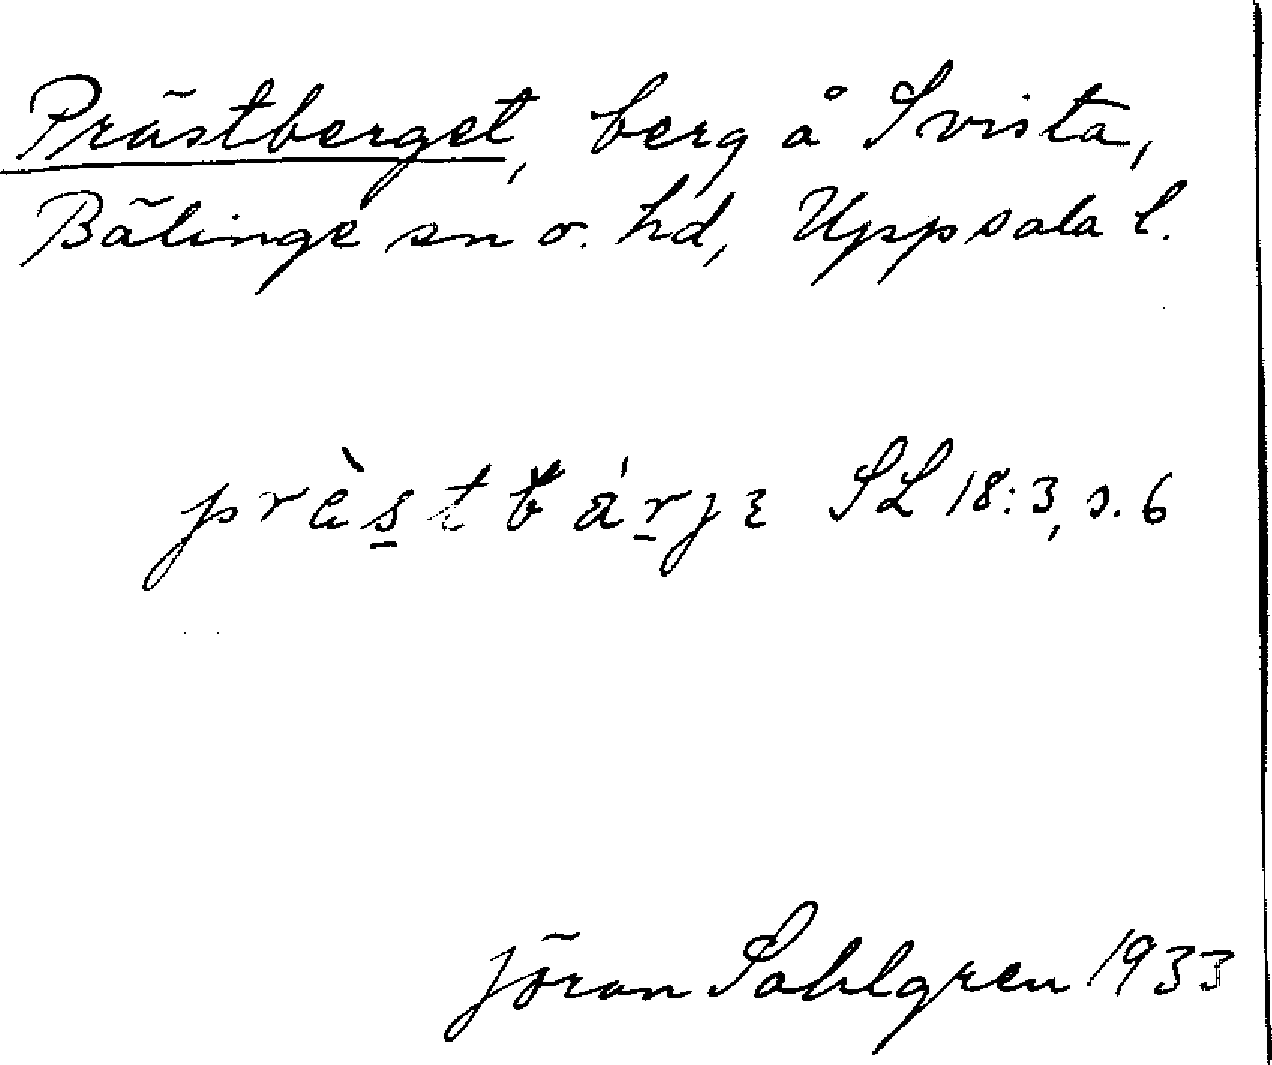 Prästberget, berg å Svista,
Bälinge sn o. hd, Uppsala l.
prɛ̀stbárjɛ SL 18:3, s. 6
Jöran Sahlgren 1933